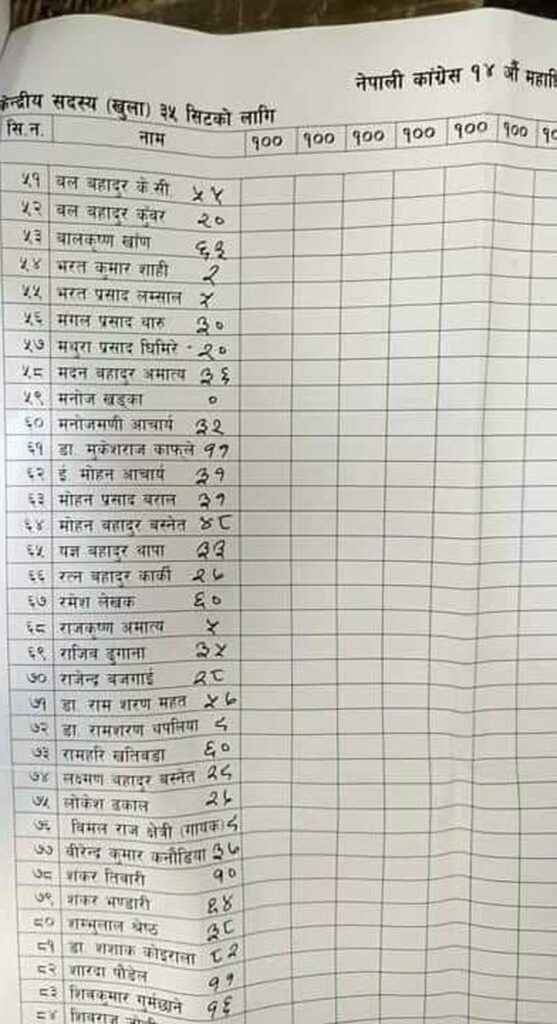 नेपाली कांग्रेस १४ औं महाधि
केन्द्रीय सदस्य (खुला) ३५ सिटको लागि
सि.न. नाम १०० १०० १०० १०० १०० १०० १०
५१ बल बहादुर के.सी. ५५
५२ बल बहादुर कुँवर २०
५३ बालकृष्ण खाँण ६३
५४ भरत कुमार शाही २
५५ भरत प्रसाद लम्साल ५
५६ मंगल प्रसाद थारु ३०
५७ मथुरा प्रसाद घिमिरे - २०
५८ मदन बहादुर अमात्य ३६
५९ मनोज खड्का ०
६० मनोजमणी आचार्य ३२
६१ डा. मुकेशराज काफ्ले १७
६२ ई. मोहन आचार्य ३१
६३ मोहन प्रसाद बराल ३१
६४ मोहन बहादुर बस्नेत ४८
६५ यज्ञ बहादुर थापा ३३
६६ रत्न बहादुर कार्की
६७ रमेश लेखक ६०
६८ राजकृष्ण अमात्य ५
६९ राजिव ढुंगाना ३५
७० राजेन्द्र बजगाई २८
७१ डा. राम शरण महत
७२ डा. रामशरण थपलिया
७३ रामहरि खतिवडा ६०
७४ लक्ष्मण बहादुर बस्नेत
७५ लोकेश ढकाल
७६ विमल राज क्षेत्री (गायक)
७७ वीरेन्द्र कुमार कनौडिया
७८ शंकर तिवारी १०
७९ शंकर भण्डारी ६४
८० शम्भुलाल श्रेष्ठ ३८
८१ डा. शशांक कोइराला ८२
८२ शारदा पौडेल
८३ शिवकुमार गुर्मछाने १६
८४ शिवराज